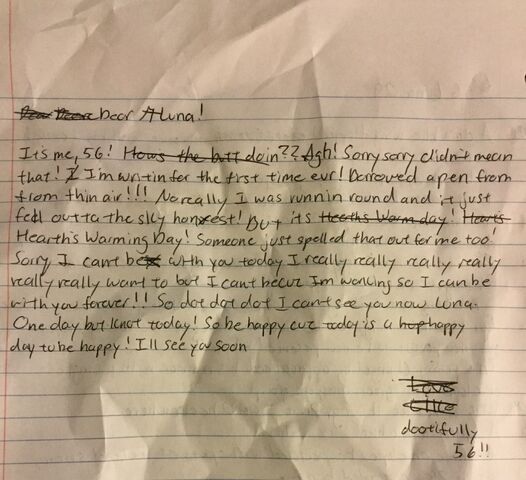 Dear Deere Dear Aluna!
It's me, 56! Hows the butt doin?? Agh! Sorry sorry didn't mean
that! I I'm writin for the first time evr! Borrowed a pen from
from thin air!!! No really I was runnin round and it just
fell outta the sky honest! But its Hearths Warm day! Hearts
Hearth's Warming Day! Someone just spelled that out for me too!
Sorry I cant be with you today I really really really really
really really want to but I cant becuz Im working so I can be
with you forever!! So dot dot dot I cant see you now Luna.
One day but knot today! So be happy cuz today is a hop happy
day to be happy! I'll see you soon
Love
dootifully
56!!